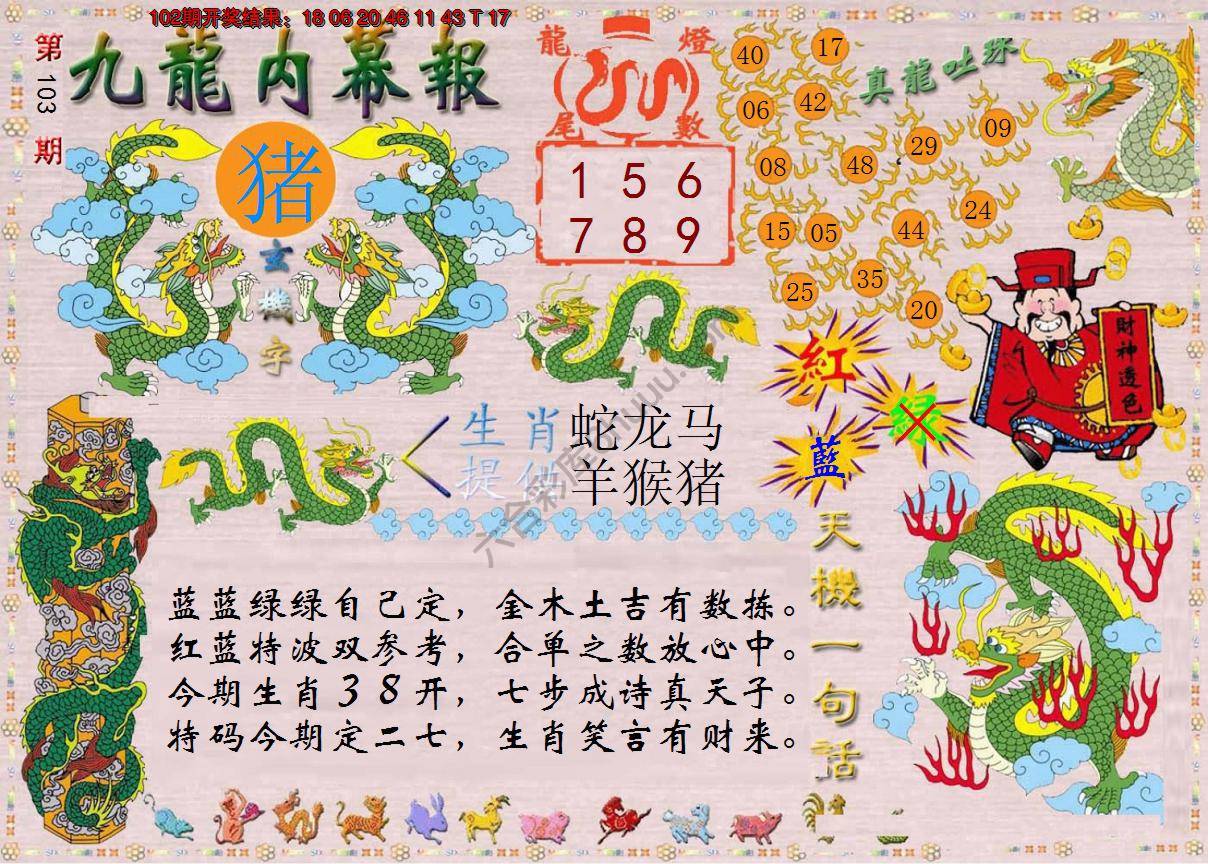 102期开奖结果：18 06 20 46 11 43 T 17
第103期
九龍内幕報
猪
玄機字
龍燈
尾數
1 5 6
7 8 9
真龍吐珠
40 17
06 42
08 48 29 09
15 05 44 24
25 35 20
紅
绿
藍
財神透色
生肖 蛇龙马
提供 羊猴猪
蓝蓝绿绿自己定，金木土吉有数拣。
红蓝特波双参考，合单之数放心中。
今期生肖38开，七步成诗真天子。
特码今期定二七，生肖笑言有财来。
天機一句話